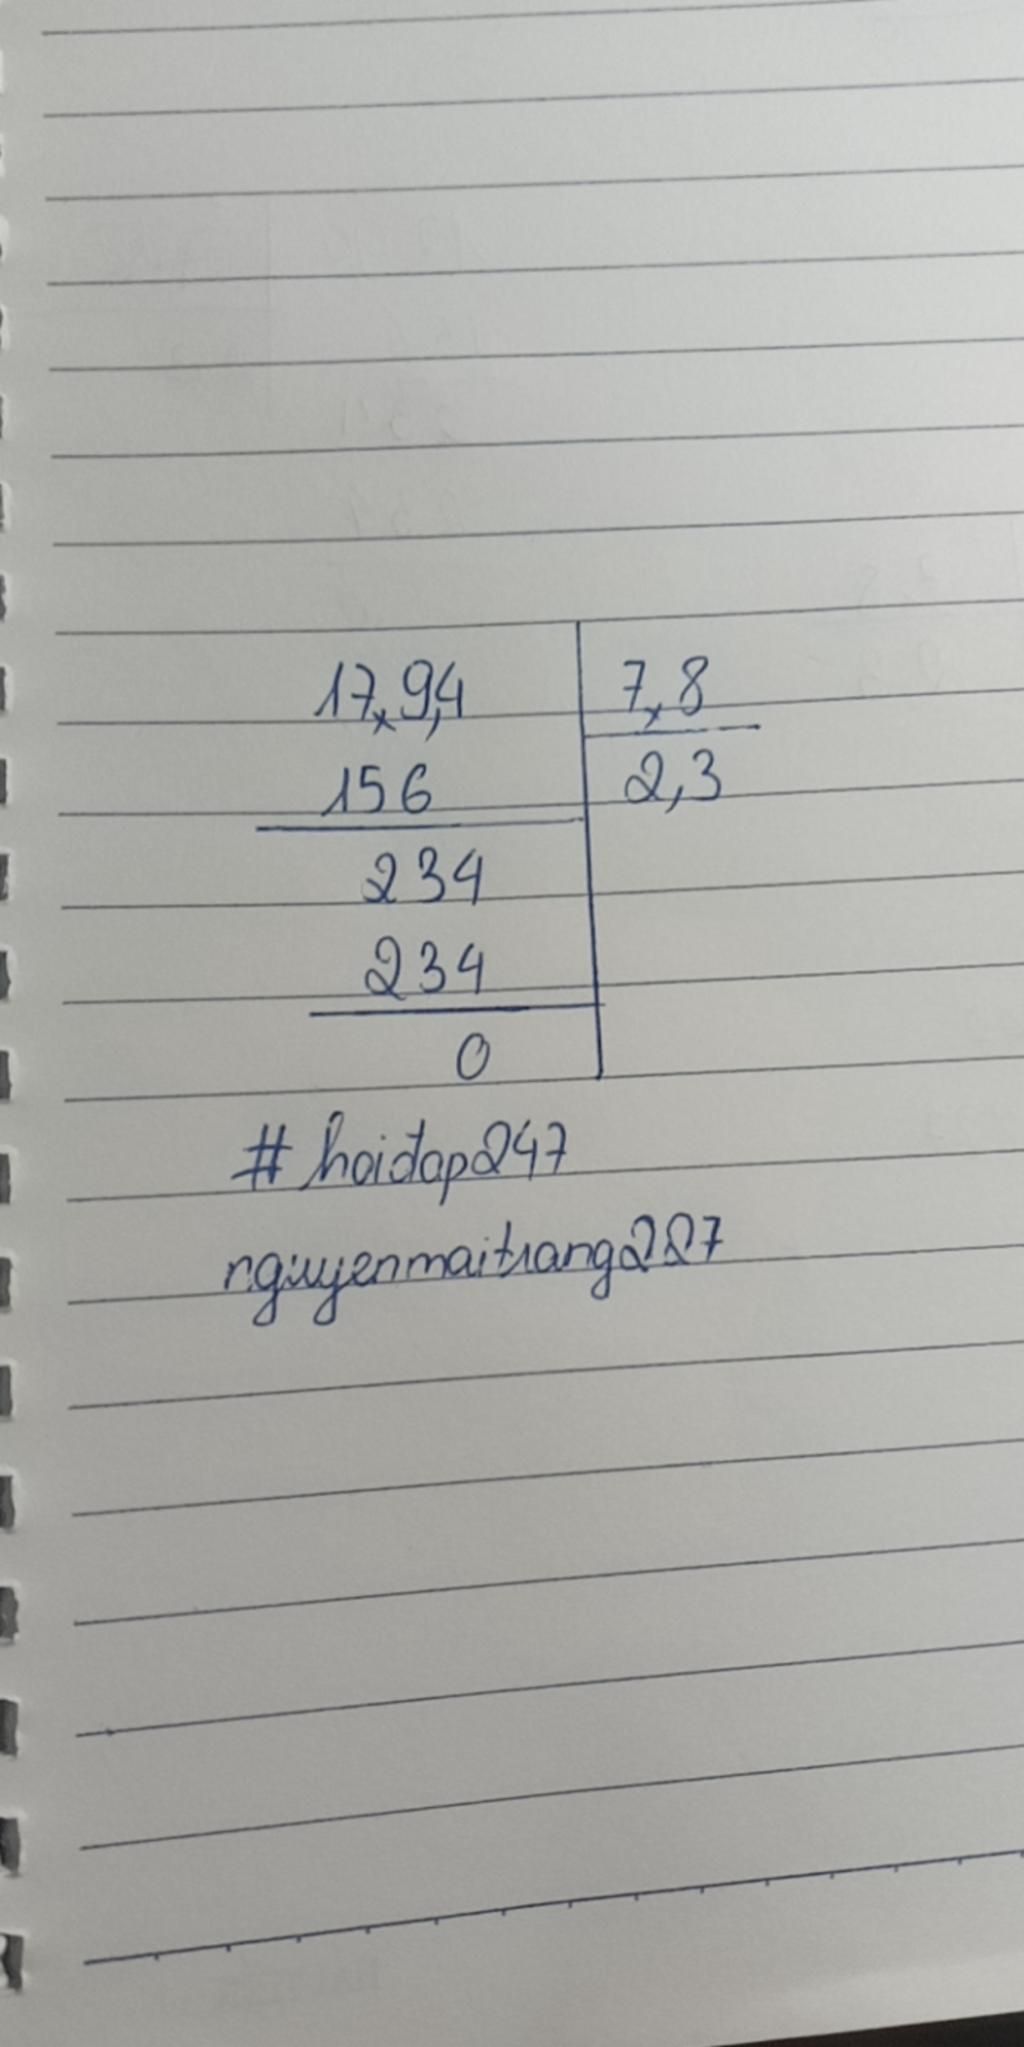 17,9,4 7,8
156 2,3
234
234
0
#hoidap247
nguyenmaitrang227